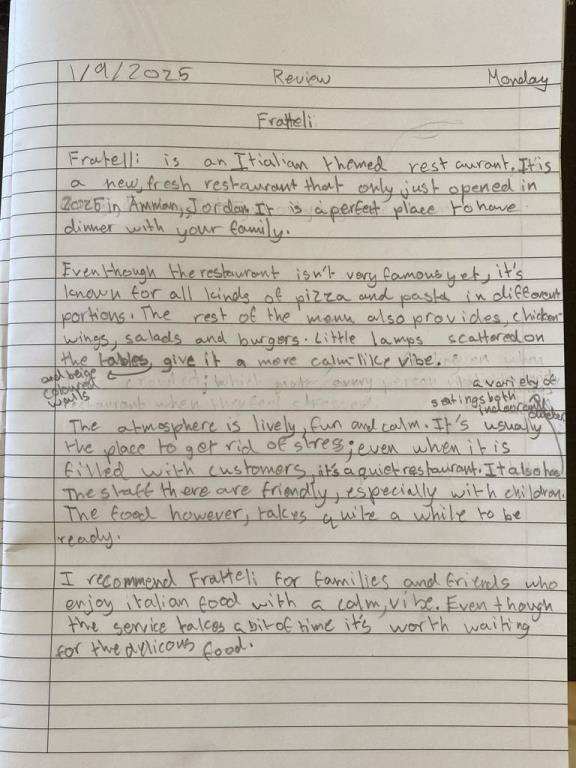 1/9/2025 Review Monday
Fratteli
Fratelli is an Itialian themed restaurant. It is
a new, fresh restaurant that only just opened in
2025 in Amman, Jordan. It is a perfect place to have
dinner with your family.
Even though the restaurant isn't very famous yet, it's
known for all kinds of pizza and pasta in different
portions. The rest of the menu also provides, chicken
wings, salads and burgers. Little lamps scattered on
the tables, give it a more calm-like vibe.
and beige
coloured
walls
a variety of
seatings both
The atmosphere is lively, fun and calm. It's usually
the place to get rid of stress; even when it is
filled with customers, it's a quiet restaurant. It also has
The staff there are friendly, especially with children.
The food however, takes quite a while to be
ready.
I recommend Fratteli for families and friends who
enjoy italian food with a calm, vibe. Even though
the service takes a bit of time it's worth waiting
for the delicous food.